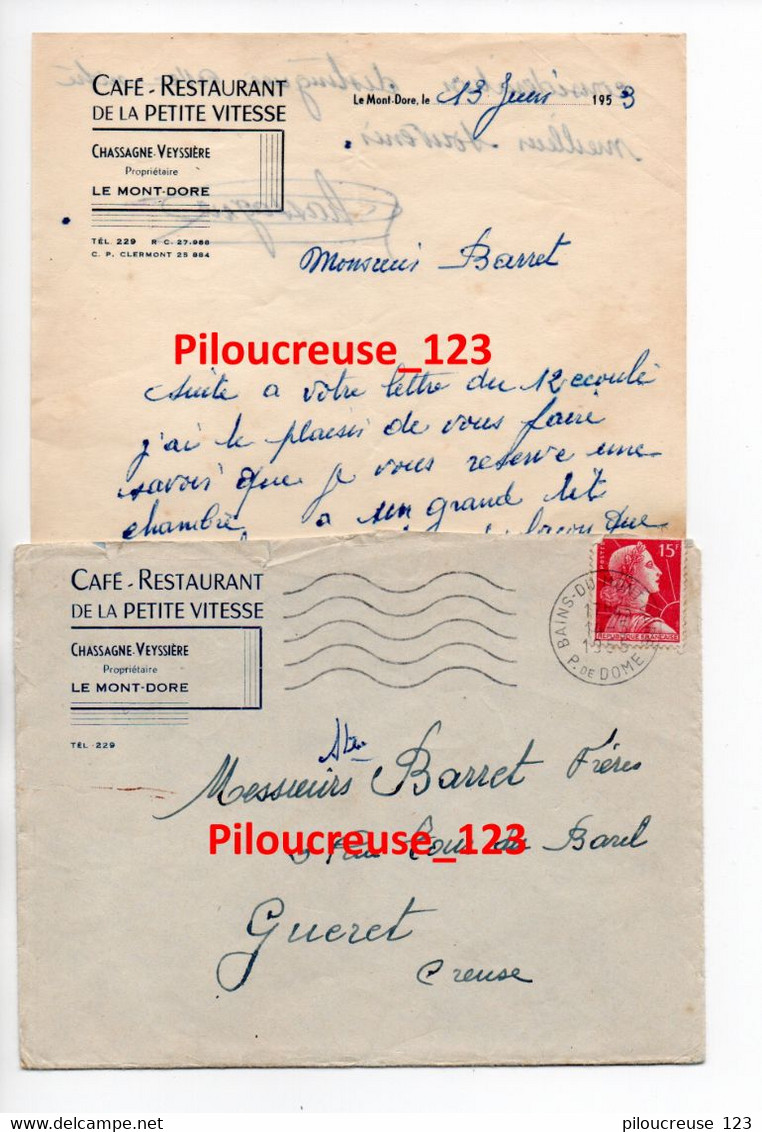 CAFÉ - RESTAURANT
DE LA PETITE VITESSE
CHASSAGNE-VEYSSIÈRE
Propriétaire
LE MONT-DORE
TÉL. 229 R C. 27.988
C. P. CLERMONT 25 884
Le Mont-Dore, le 13 Juin 195
Monsieur Barret
Piloucreuse_123
suite a votre lettre du 12 ecoulé
j'ai le plaisir de vous faire
savoir que je vous reserve une
chambre a un grand lit
que
CAFÉ - RESTAURANT
DE LA PETITE VITESSE
CHASSAGNE-VEYSSIÈRE
Propriétaire
LE MONT-DORE
TÉL. 229
POSTES
15F
REPUBLIQUE FRANÇAISE
BAINS-DU-MONT
P. DE DOME
Messieurs Barret Frères
Piloucreuse_123
Rue du Barel
Gueret
Creuse
piloucreuse 123
piloucreuse 123